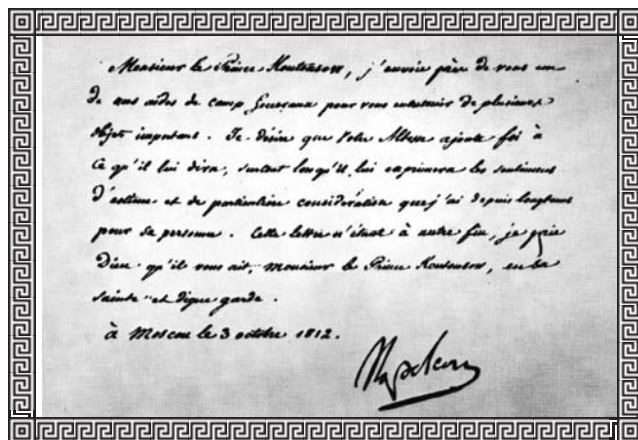 Monsieur le Prince Koutousow, j'envoie près de vous un
de mes aides de camp Généraux pour vous entretenir de plusieurs
objets importans. Je désire que Votre Altesse ajoute foi à
ce qu'il lui dira, surtout lorsqu'il lui exprimera les sentimens
d'estime et de particulière considération que j'ai depuis longtems
pour sa personne. Cette lettre n'étant à autre fin, je prie
Dieu qu'il vous ait, Monsieur le Prince Koutousow, en sa
sainte et digne garde.
à Moscou le 3 octobre 1812.
Napoleon